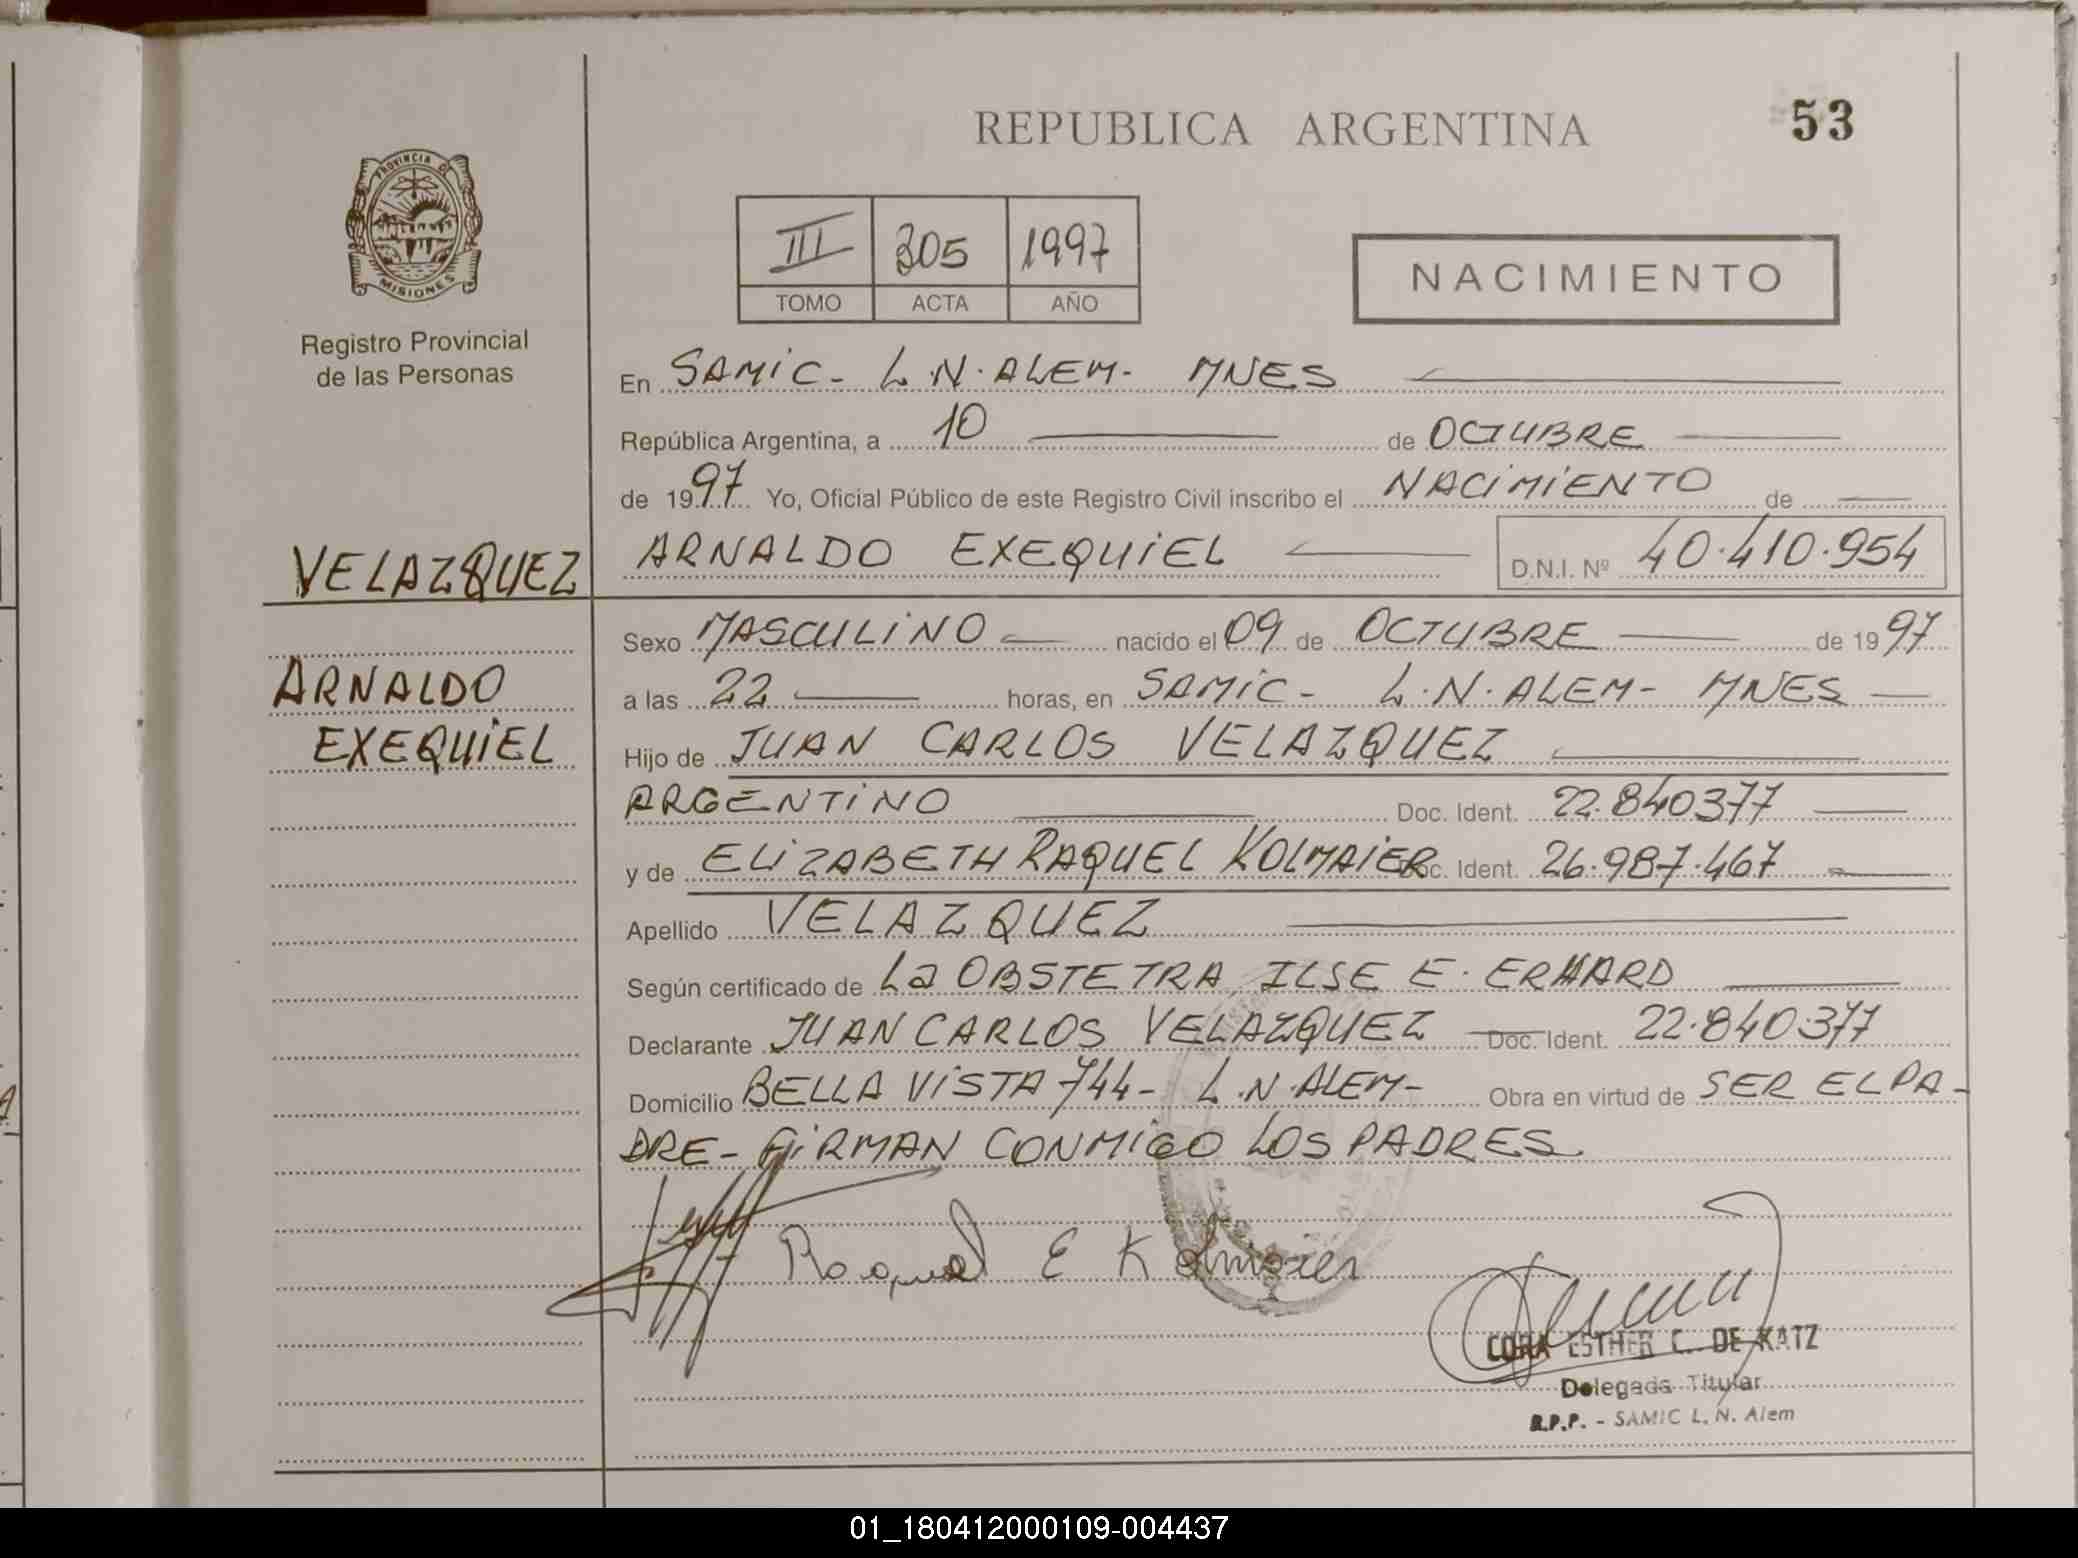 REPUBLICA ARGENTINA
53
PROVINCIA DE
MISIONES
Registro Provincial
de las Personas
III 305 1997
TOMO ACTA AÑO
NACIMIENTO
En SAMIC - L.N. ALEM - MNES
República Argentina, a 10 de OCTUBRE
de 1997 Yo, Oficial Público de este Registro Civil inscribo el NACIMIENTO de
VELAZQUEZ
ARNALDO EXEQUIEL D.N.I. Nº 40.410.954
ARNALDO
EXEQUIEL
Sexo MASCULINO nacido el 09 de OCTUBRE de 1997
a las 22 horas, en SAMIC - L.N. ALEM - MNES
Hijo de JUAN CARLOS VELAZQUEZ
ARGENTINO Doc. Ident. 22.840377
y de ELIZABETH RAQUEL KOLMAIER Doc. Ident. 26.987.467
Apellido VELAZQUEZ
Según certificado de La OBSTETRA ILSE E. ERHARD
Declarante JUAN CARLOS VELAZQUEZ Doc. Ident. 22.840.377
Domicilio BELLA VISTA 744 - L.N. ALEM - Obra en virtud de SER EL PA-
DRE - FIRMAN CONMIGO LOS PADRES
Raquel E Kolmaier
CORA ESTHER C. DE KATZ
Delegada Titular
R.P.P. - SAMIC L. N. Alem
01_180412000109-004437